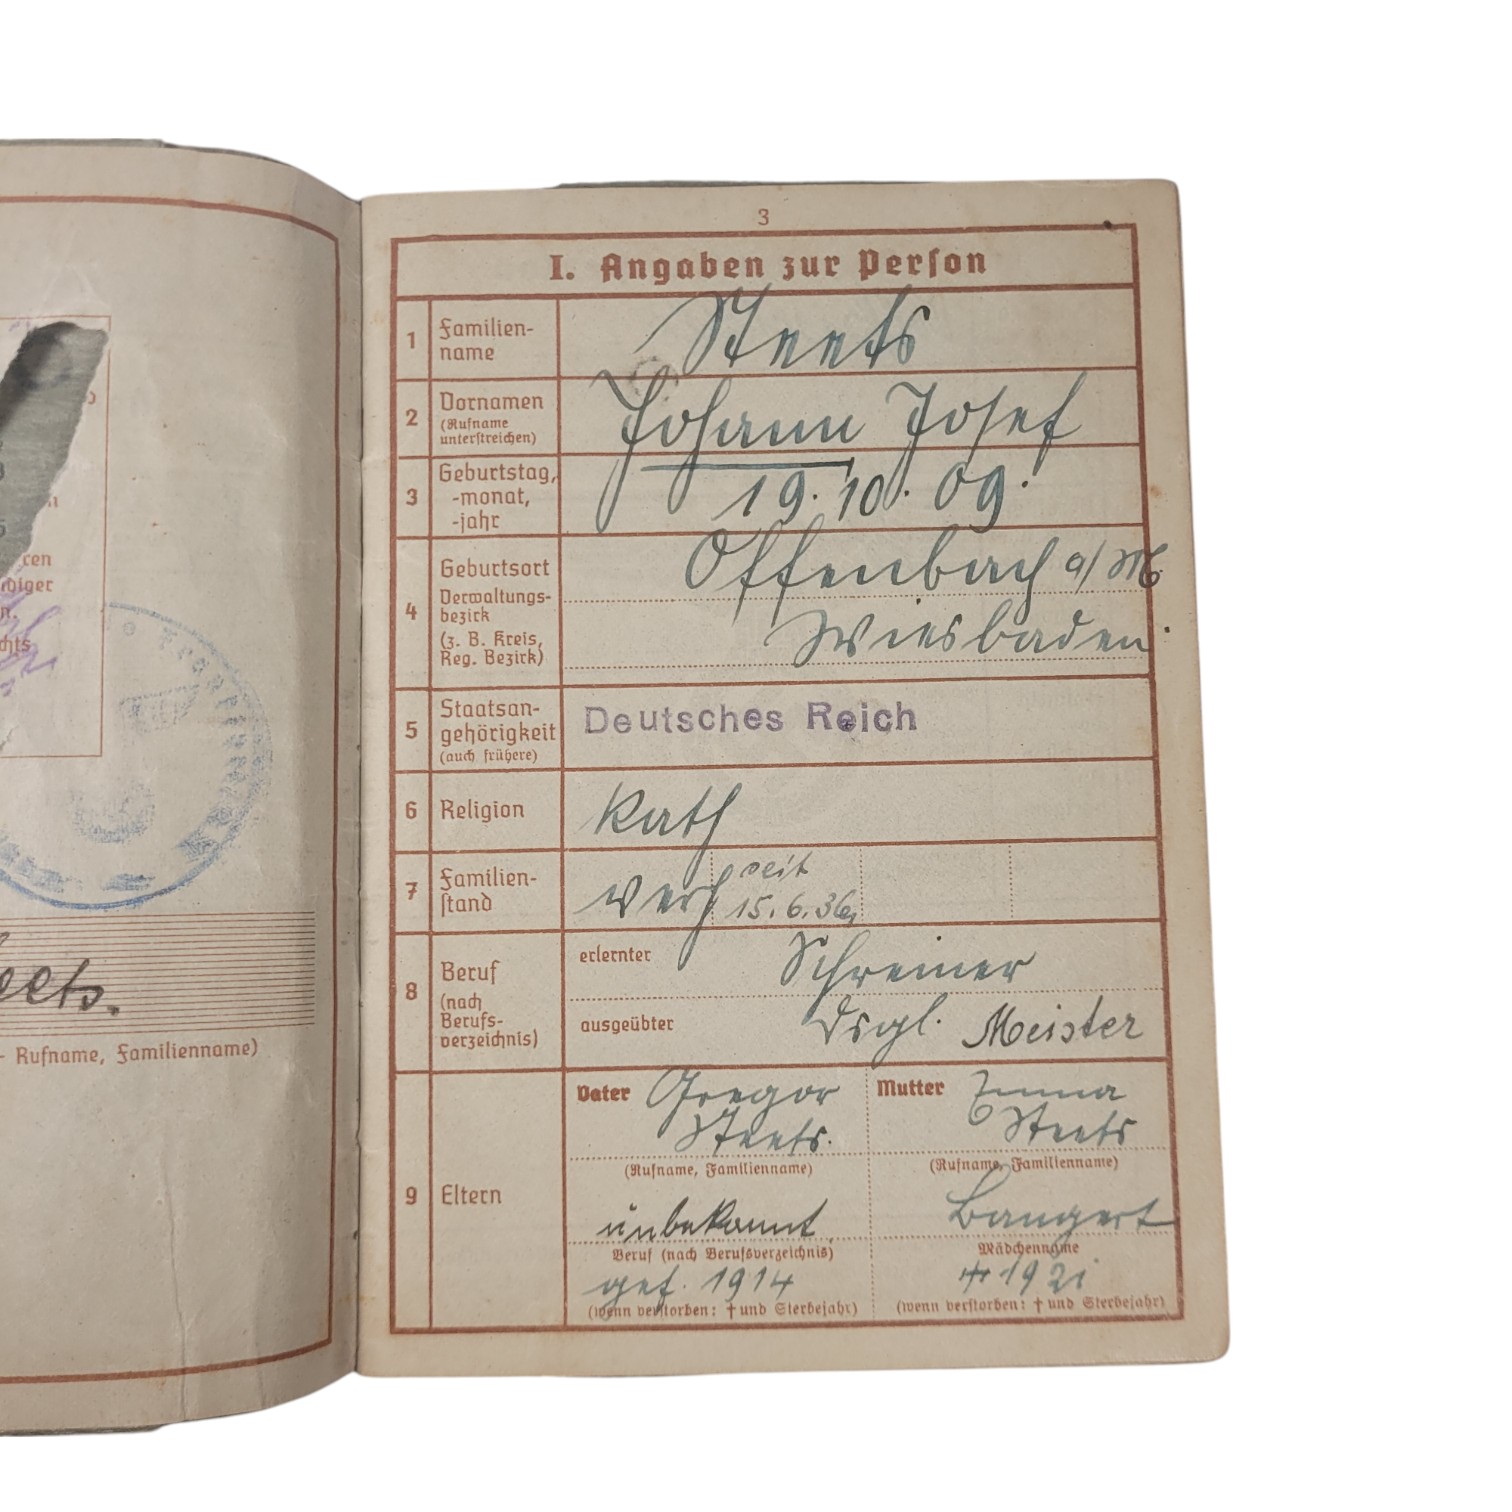 cen
diger
n.
chts
eets.
- Rufname, Familienname)
3
I. Angaben zur Person
1 Familien-
name
Steets
2 Vornamen
(Rufname
unterstreichen)
Johann Josef
3 Geburtstag,
-monat,
-jahr
19. 10. 09.
4 Geburtsort
Verwaltungs-
bezirk
(z. B. Kreis,
Reg. Bezirk)
Offenbach a/M.
Wiesbaden.
5 Staatsan-
gehörigkeit
(auch frühere)
Deutsches Reich
6 Religion
Kath
7 Familien-
stand
verh seit
15.6.36
8 Beruf
(nach
Berufs-
verzeichnis)
erlernter Schreiner
ausgeübter Dsgl. Meister
9 Eltern
Vater Gregor
Steets.
(Rufname, Familienname)
unbekannt
Beruf (nach Berufsverzeichnis)
gef. 1914
(wenn verstorben: † und Sterbejahr)
Mutter Emma
Steets
(Rufname, Familienname)
Bangert
Mädchenname
† 1921
(wenn verstorben: † und Sterbejahr)